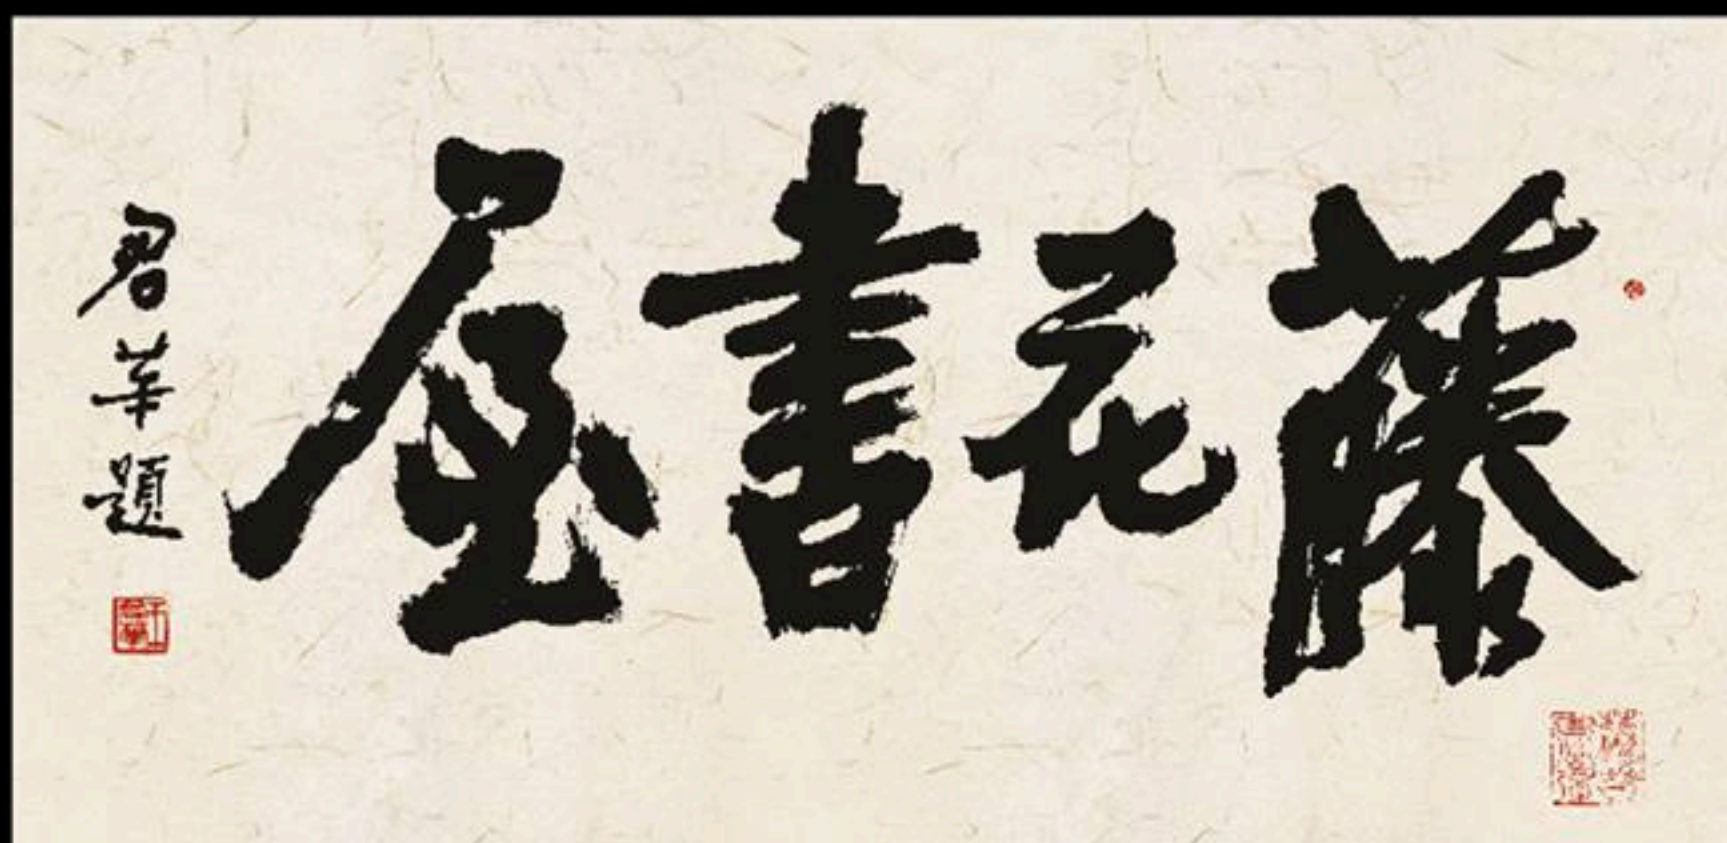 藤花書屋
君華題